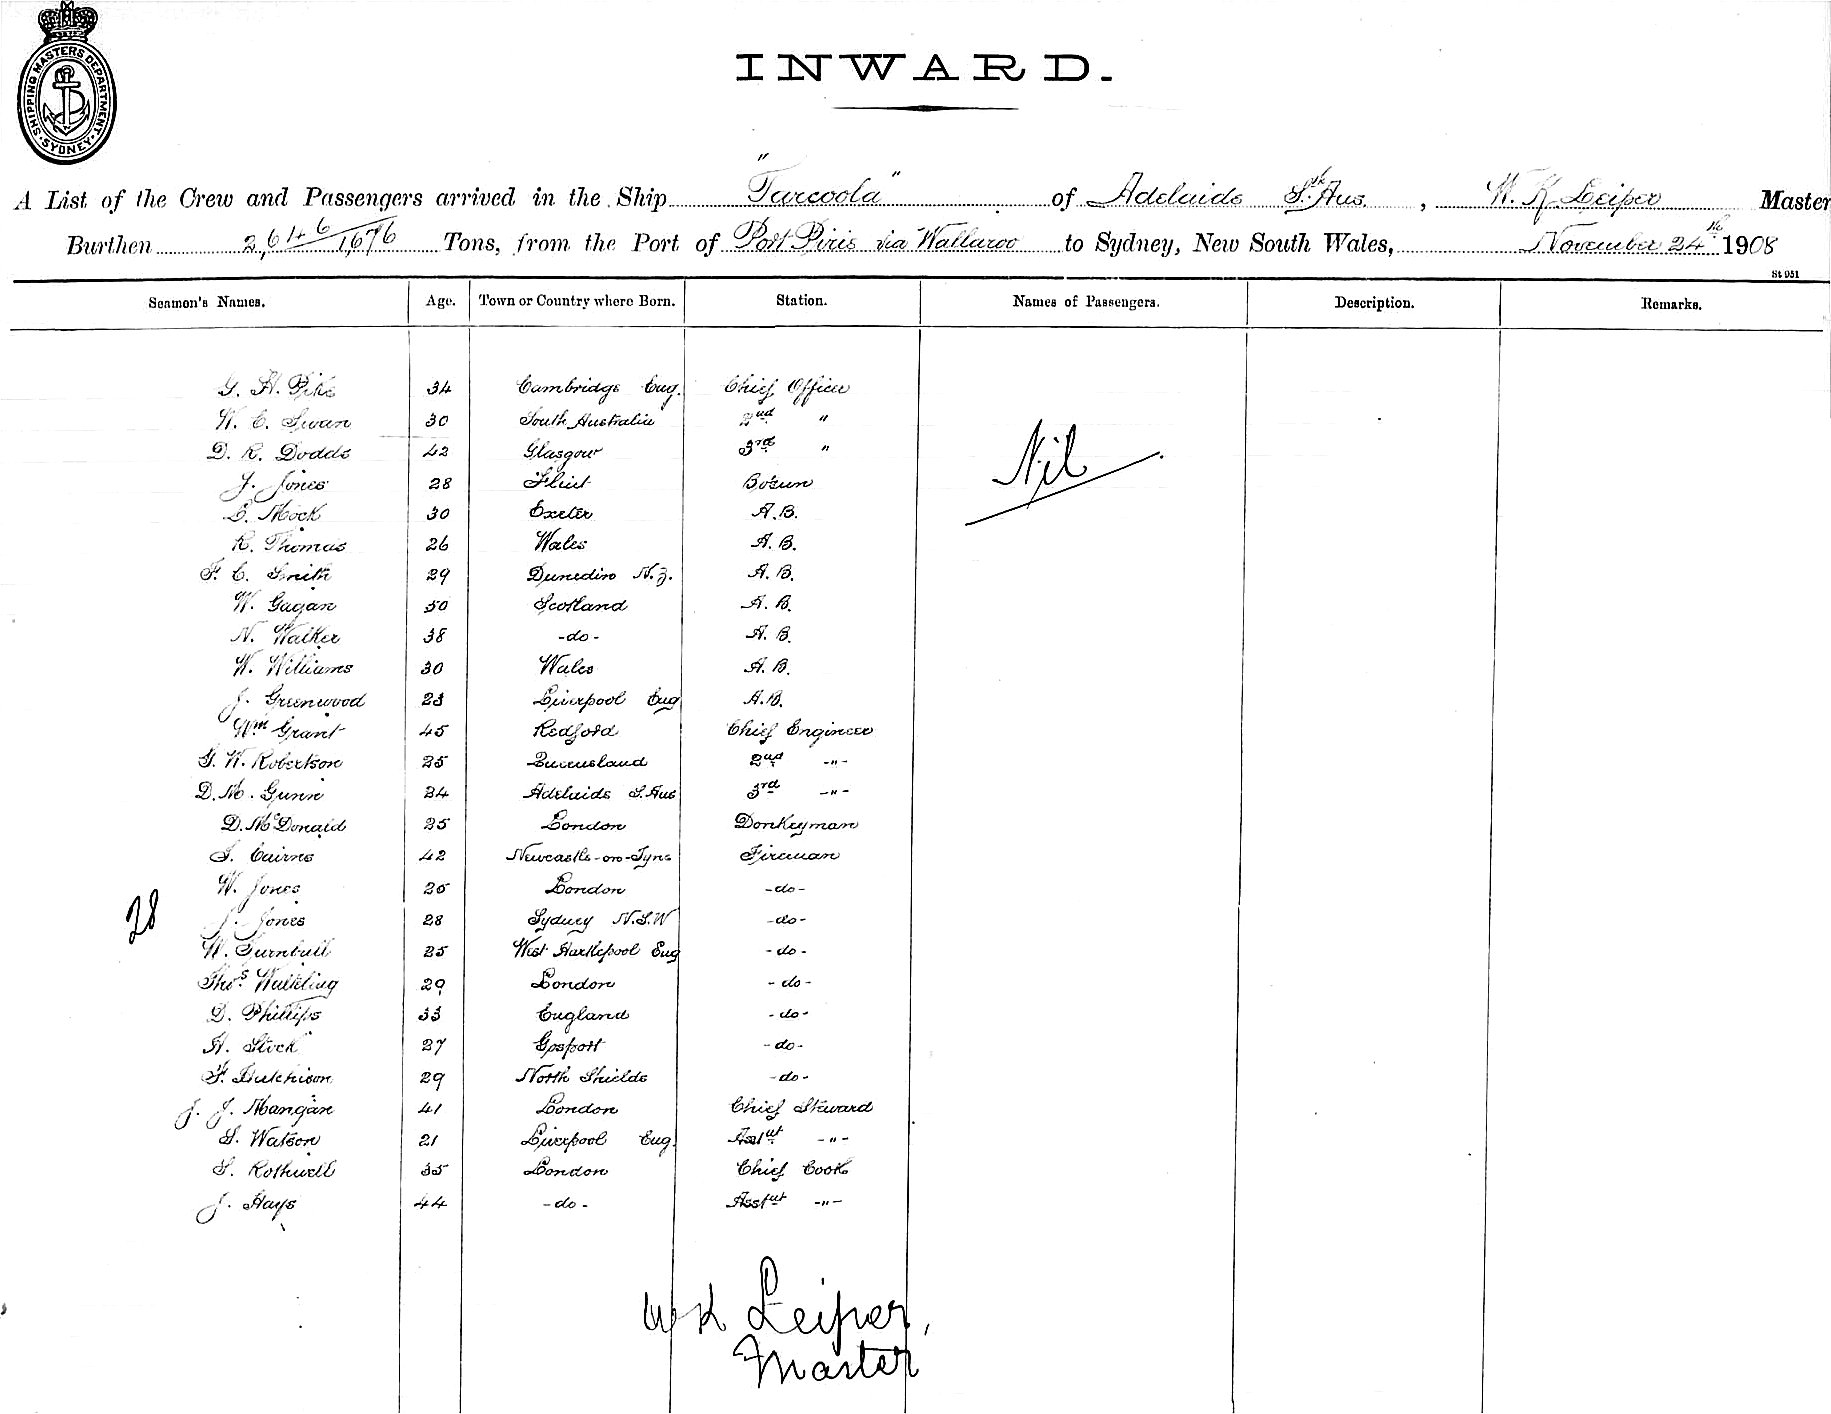 SHIPPING MASTERS DEPARTMENT · SYDNEY ·
INWARD.
A List of the Crew and Passengers arrived in the Ship "Tarcoola" of Adelaide Sth Aus., W. K. Leiper Master
Burthen 2,646/1,676 Tons, from the Port of Port Pirie via Wallaroo to Sydney, New South Wales, November 24th 1908
St 951
Seamen's Names. Age. Town or Country where Born. Station. Names of Passengers. Description. Remarks.
G. H. Pike 34 Cambridge Eng. Chief Officer
W. C. Swan 30 South Australia 2nd "
D. R. Dodds 42 Glasgow 3rd "
Nil
J. Jones 28 Flint Bosun
E. Mock 30 Exeter A.B.
R. Thomas 26 Wales A.B.
F. C. Smith 29 Dunedin N.Z. A.B.
W. Gagan 50 Scotland A.B.
N. Walker 38 -do- A.B.
W. Williams 30 Wales A.B.
J. Greenwood 23 Liverpool Eng A.B.
Wm Grant 45 Redford Chief Engineer
G. W. Robertson 25 Queensland 2nd -"-
D. M. Gunn 24 Adelaide S. Aus 3rd -"-
D. McDonald 25 London Donkeyman
J. Cairns 42 Newcastle-on-Tyne Fireman
W. Jones London -do-
28
J. Jones 28 Sydney N.S.W -do-
W. Turnbull 25 West Hartlepool Eng -do-
Thos. Watkling 29 London -do-
D. Phillips 33 England -do-
H. Stock 27 Gosport -do-
F. Hutchison 29 North Shields -do-
J. J. Mangan 41 London Chief Steward
S. Watson 21 Liverpool Eng. Asstnt -"-
S. Rothwell 35 London Chief Cook
J. Hays 44 -do- Asstnt -"-
W K Leiper,
Master